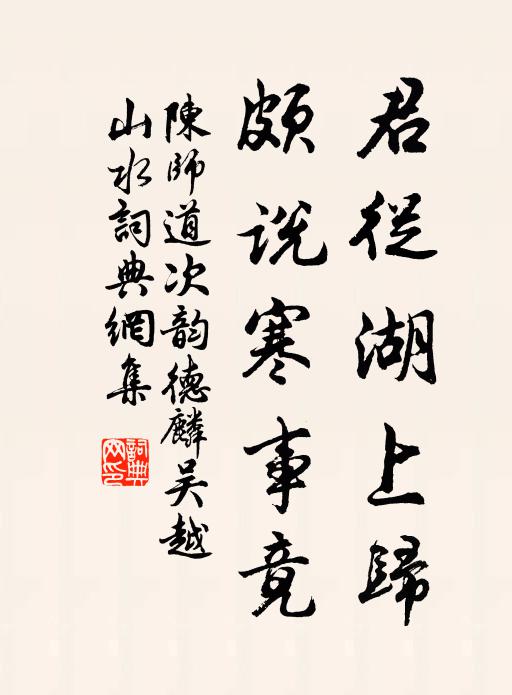 君從湖上歸
頗説寒事竟
陳師道次韵德麟吴越
山水詞典網集
詞典
网印